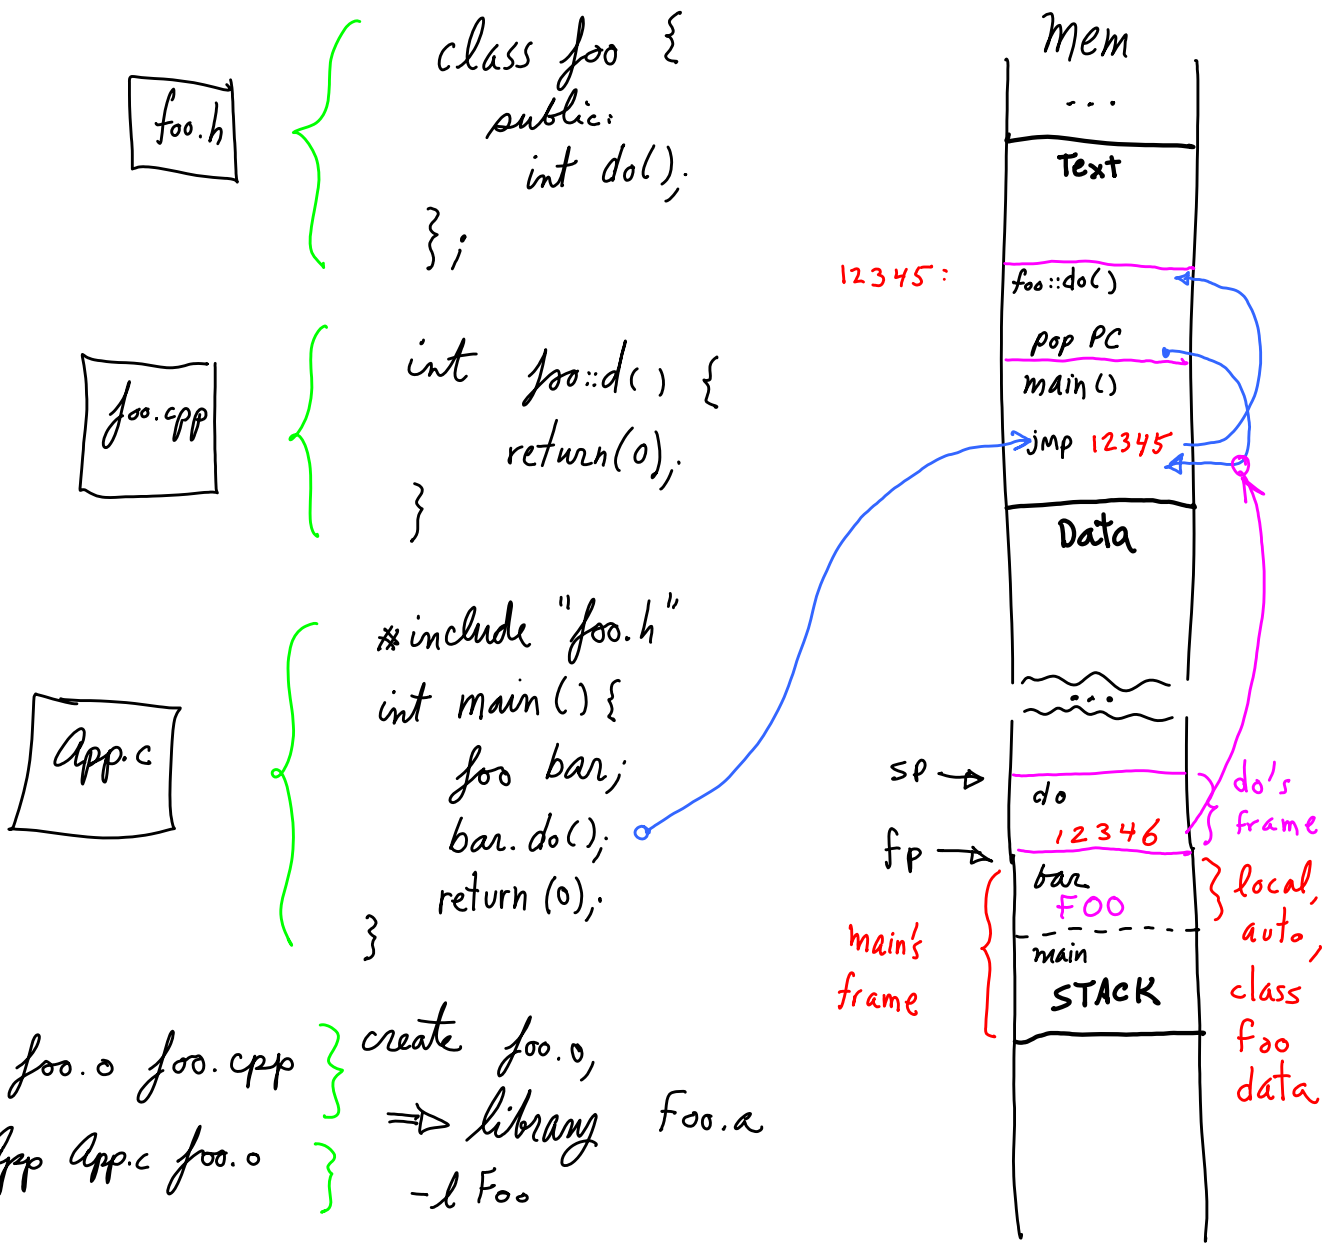 foo.h
class foo {
public:
int do();
};
foo.cpp
int foo::d() {
return(0);
}
App.c
#include "foo.h"
int main() {
foo bar;
bar.do();
return (0);
}
foo.o foo.cpp
create foo.o,
⇒ library Foo.a
App.c foo.o
-l Foo
Mem
...
Text
12345:
foo::do()
pop PC
main()
jmp 12345
Data
...
sp →
do
12346
do's
frame
fp →
bar
FOO
main
STACK
main's
frame
local,
auto,
class
foo
data